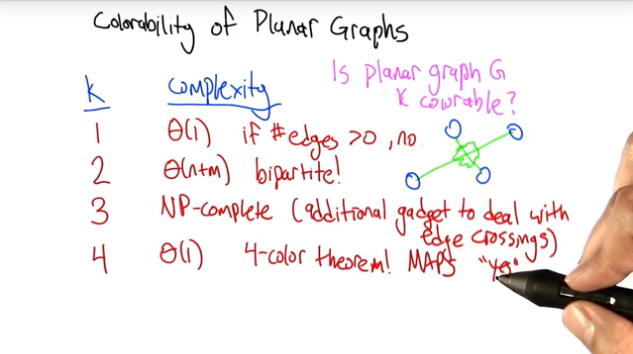 Colorability of Planar Graphs
Is planar graph G
K colorable?
k complexity
1 Θ(1) if #edges >0, no
2 Θ(n+m) bipartite!
3 NP-complete (additional gadget to deal with
edge crossings)
4 Θ(1) 4-color theorem! MAPS "yes"